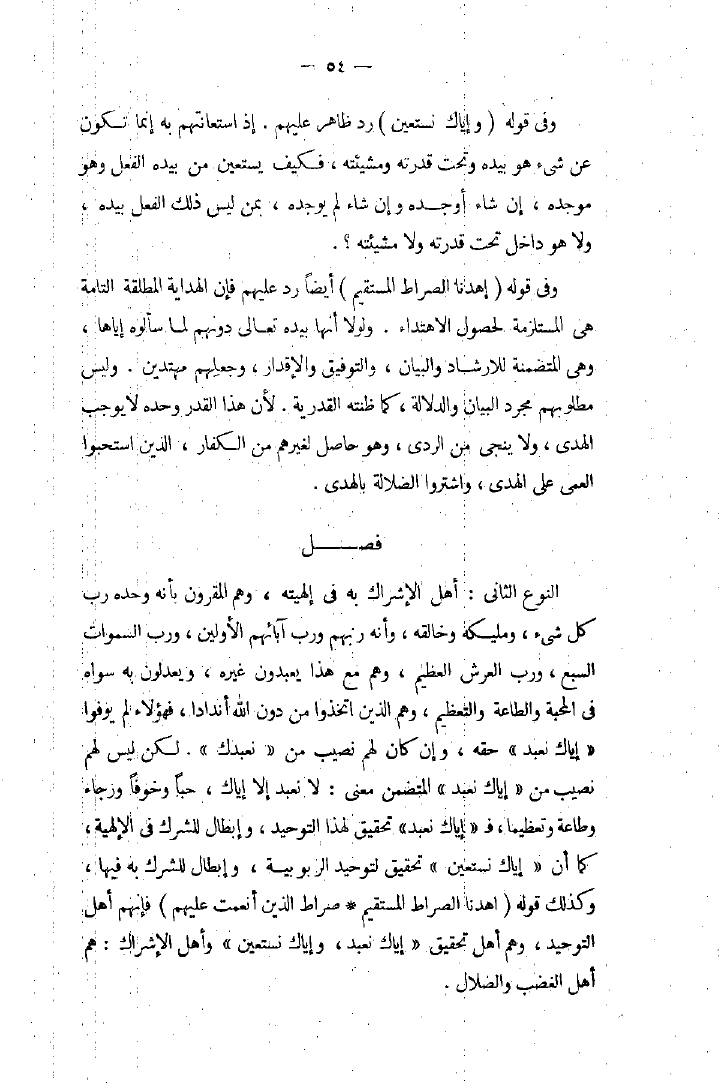 — ٥٤ —
وفى قوله ( وإياك نستعين ) رد ظاهر عليهم . إذ استعانتهم به إنما تكون
عن شىء هو بيده وتحت قدرته ومشيئته ، فكيف يستعين من بيده الفعل وهو
موجده ، إن شاء أوجده وإن شاء لم يوجده ، بمن ليس ذلك الفعل بيده ،
ولا هو داخل تحت قدرته ولا مشيئته ؟ .
وفى قوله ( إهدنا الصراط المستقيم ) أيضاً رد عليهم فإن الهداية المطلقة التامة
هى المستلزمة لحصول الاهتداء . ولولا أنها بيده تعالى دونهم لما سألوه إياها ،
وهى المتضمنة للارشاد والبيان ، والتوفيق والإقدار ، وجعلهم مهتدين . وليس
مطلوبهم مجرد البيان والدلالة ، كما ظنته القدرية . لأن هذا القدر وحده لا يوجب
الهدى ، ولا ينجى من الردى ، وهو حاصل لغيرهم من الكفار ، الذين استحبوا
العمى على الهدى ، واشتروا الضلالة بالهدى .
فصل
النوع الثانى : أهل الإشراك به فى إلهيته ، وهم المقرون بأنه وحده رب
كل شىء ، ومليكه وخالقه ، وأنه ربهم ورب آبائهم الأولين ، ورب السموات
السبع ، ورب العرش العظيم ، وهم مع هذا يعبدون غيره ، ويعدلون به سواه
فى المحبة والطاعة والتعظيم ، وهم الذين اتخذوا من دون الله أندادا ، فهؤلاء لم يوفوا
« إياك نعبد » حقه ، وإن كان لهم نصيب من « نعبدك » . لكن ليس لهم
نصيب من « إياك نعبد » المتضمن معنى : لا نعبد إلا إياك ، حباً وخوفاً ورجاء
وطاعة وتعظيما ، فـ « إياك نعبد » تحقيق لهذا التوحيد ، وإبطال للشرك فى الإلهية ،
كما أن « إياك نستعين » تحقيق لتوحيد الربوبية ، وإبطال للشرك به فيها ،
وكذلك قوله ( اهدنا الصراط المستقيم * صراط الذين أنعمت عليهم ) فإنهم أهل
التوحيد ، وهم أهل تحقيق « إياك نعبد ، وإياك نستعين » وأهل الإشراك : هم
أهل الغضب والضلال .